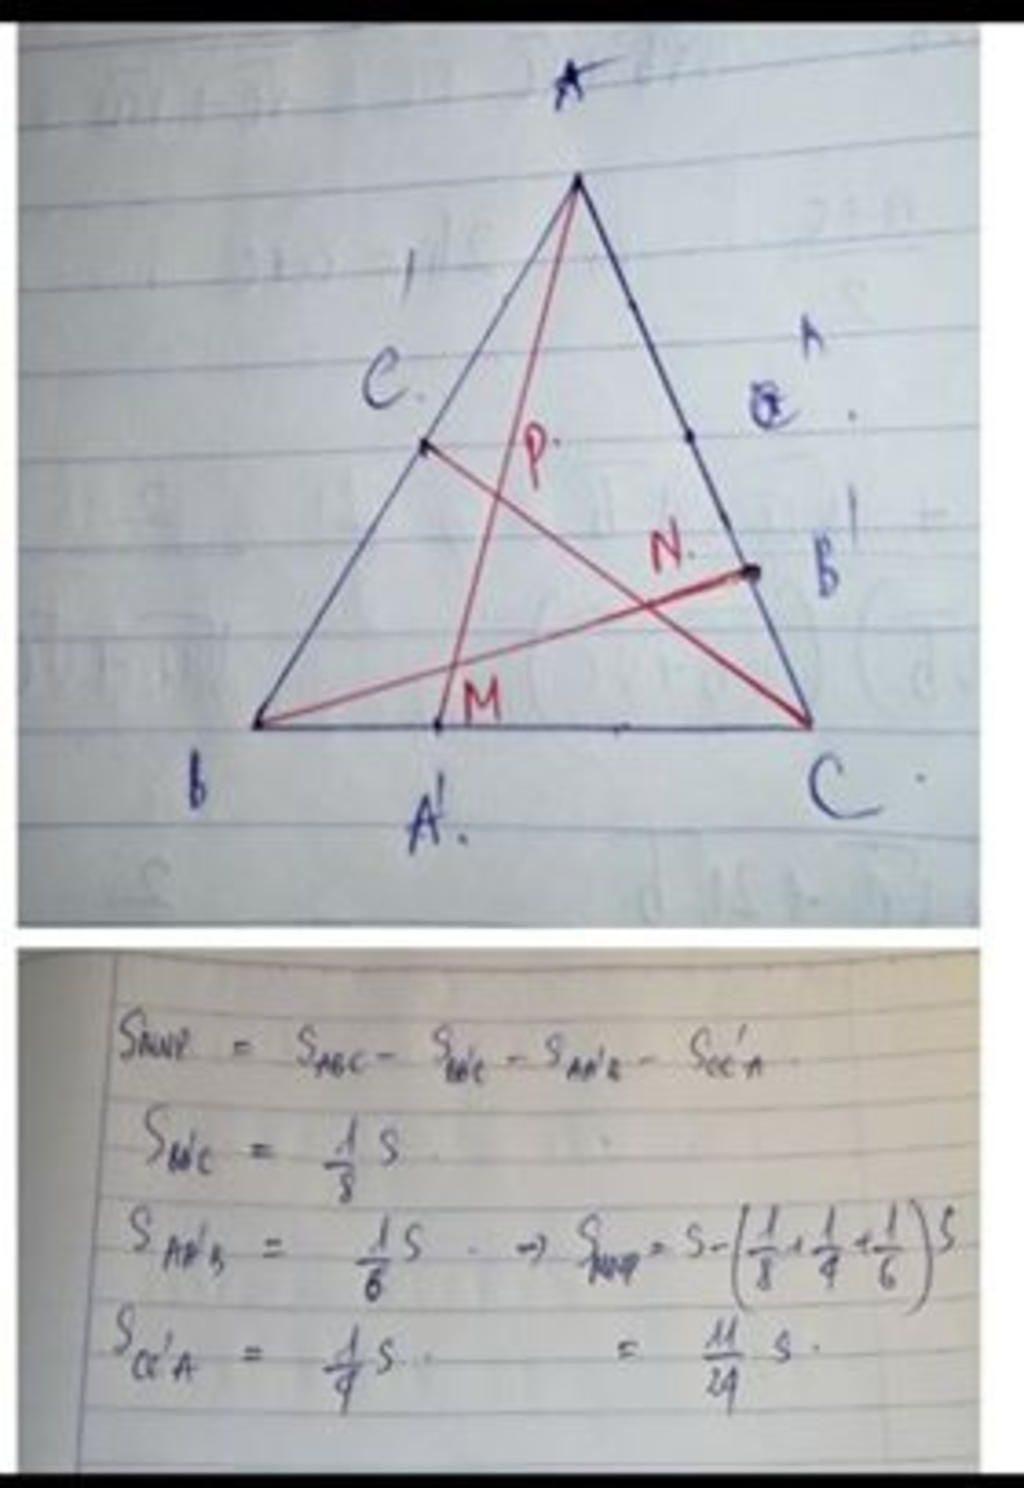 A
C'
P.
N.
B'
M
B
A'.
C
S_MNP = S_ABC - S_BB'C - S_AA'B - S_CC'A
S_BB'C = 1/8 S
S_AA'B = 1/6 S → S_MNP = S - (1/8 + 1/4 + 1/6) S
S_CC'A = 1/4 S = 11/24 S.